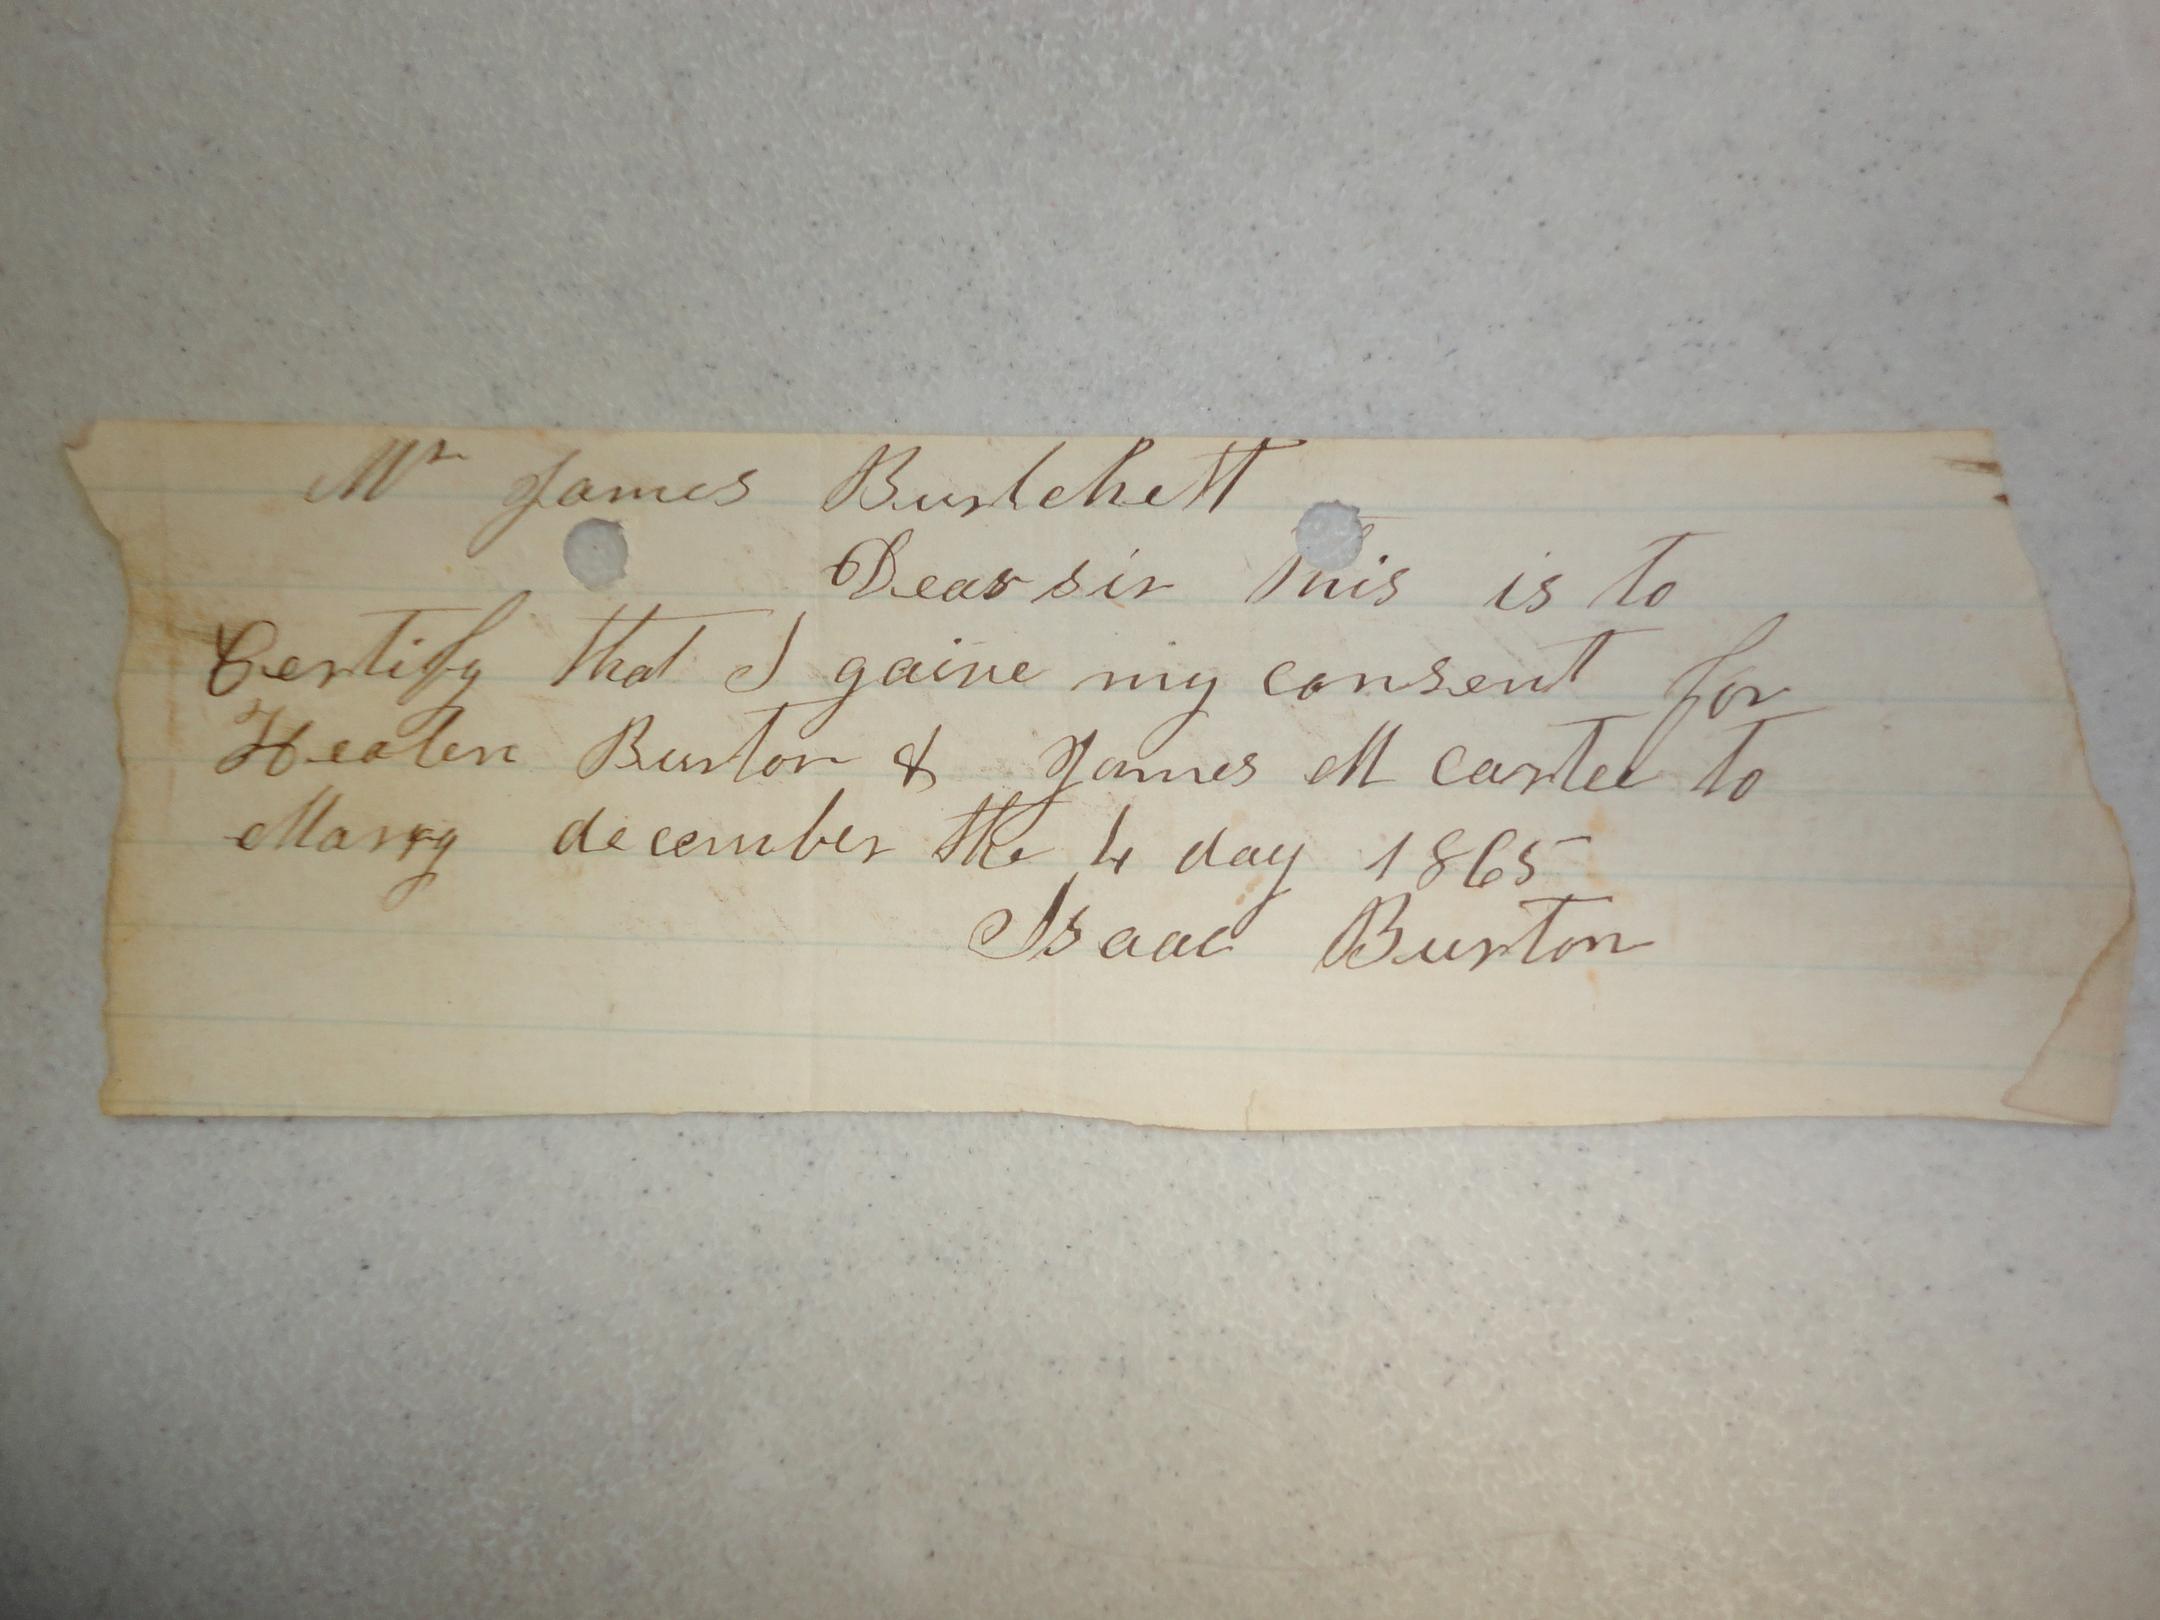 Mr James Burtchett
Dear sir this is to
Certify that I gaive my consent for
Healen Burton & James M cartee to
Marry december the 4 day 1865
Isaac Burton